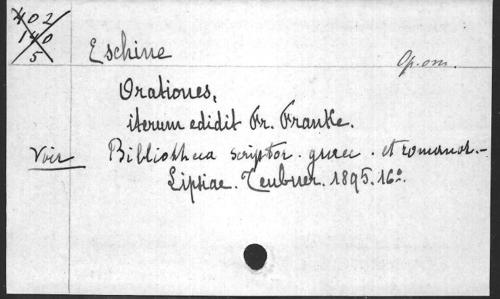 402
140
5
Eschine
Op. om.
Orationes,
iterum edidit Fr. Franke.
Voir Bibliotheca scriptor. graec. et romanor.-
Lipsiae. Teubner. 1895. 16º.